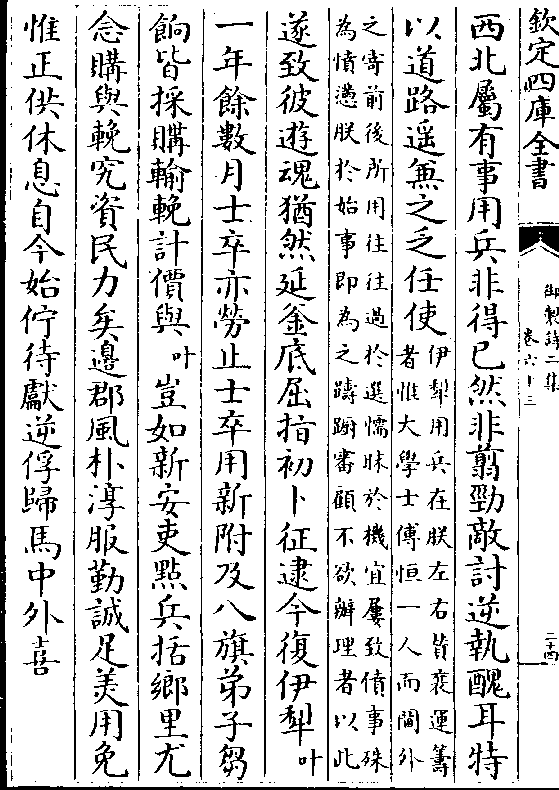 欽定四庫全書
御製詩二集
卷六十三
二十四
西北屬有事用兵非得已然非翦勁敵討逆執醜耳特
以道路遥無之乏任使
伊犁用兵在朕左右贊襄運籌
者惟大學士傅恒一人而閫外
之寄前後所用往往過於選懦昧於機宜屢致僨事殊
為憤懣朕於始事即為之躊躕審顧不欲辦理者以此
遂致彼遊魂猶然延釡底屈指初卜征逮今復伊犁叶
一年餘數月士卒亦勞止士卒用新附及八旗弟子芻
餉皆採購輸輓計價與叶豈如新安吏點兵括鄉里尤
念購與輓究資民力矣邊郡風朴淳服勤誠足美用免
惟正供休息自今始佇待獻逆俘歸馬中外喜